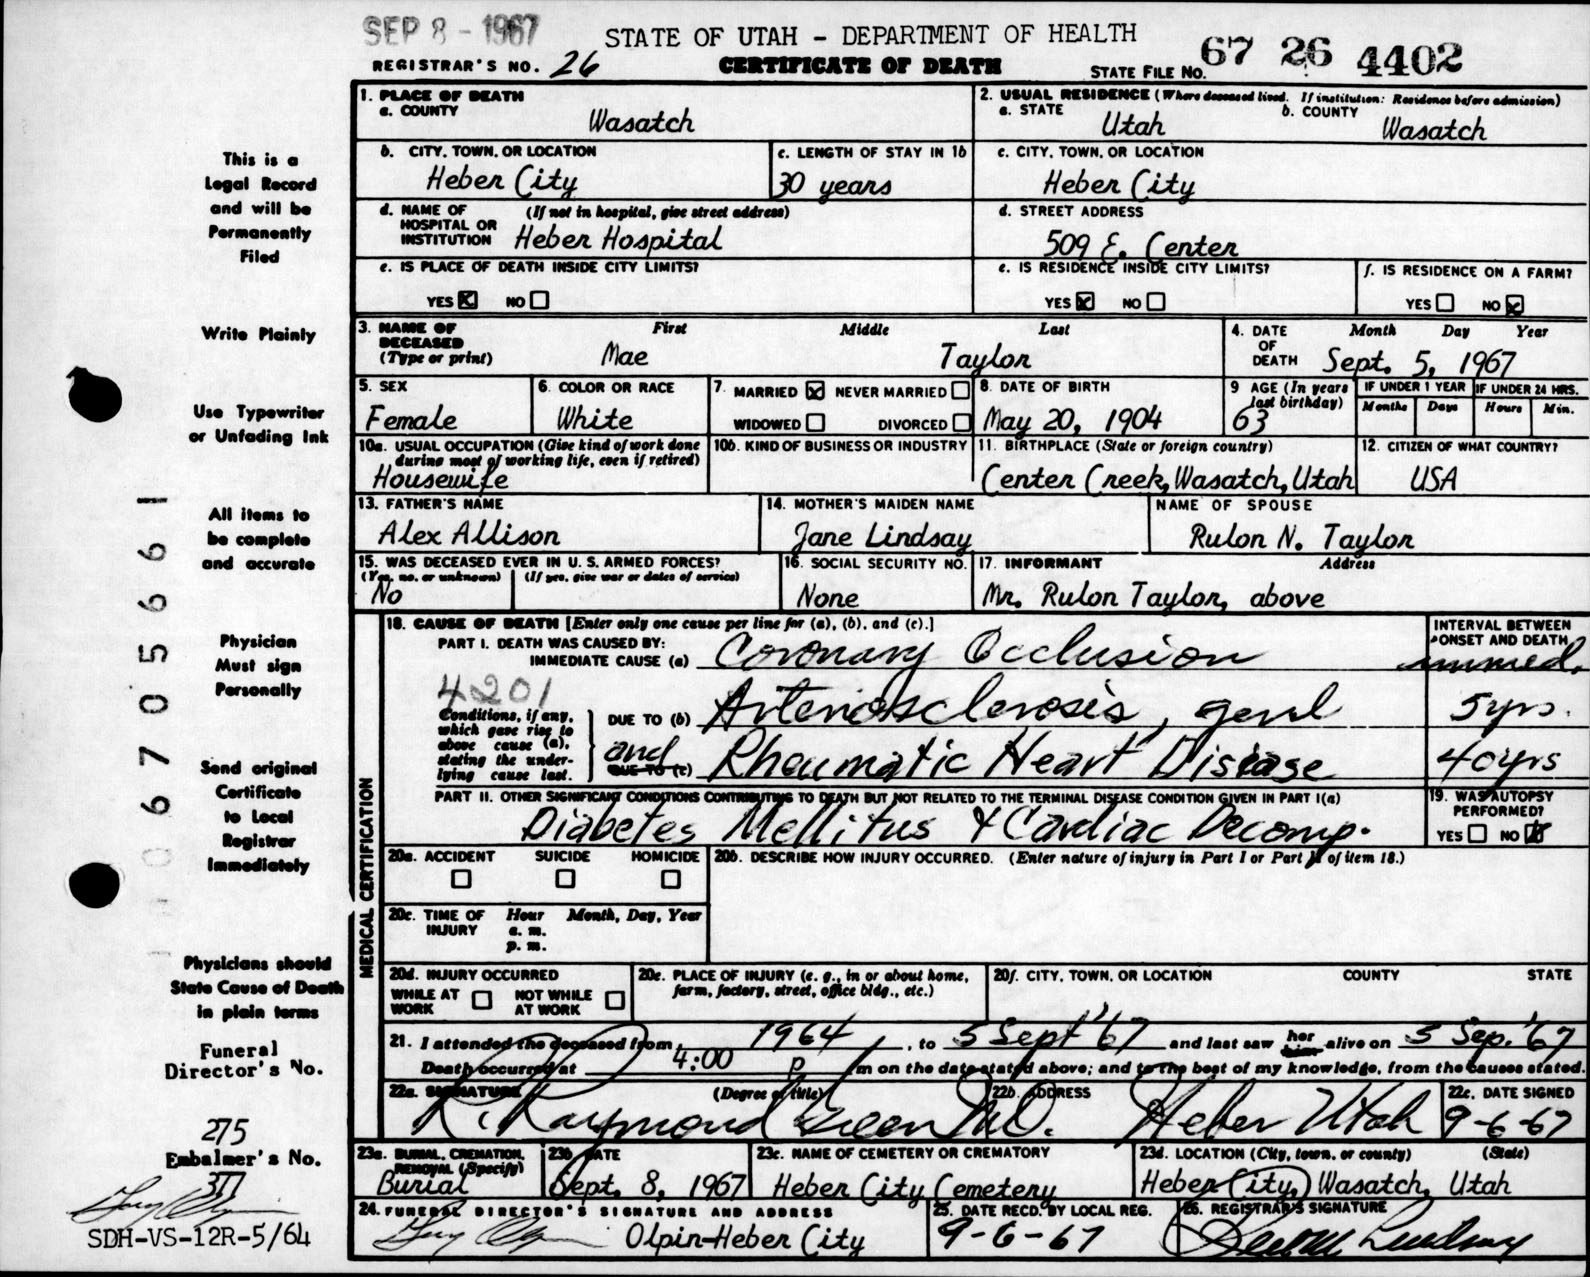 SEP 8 - 1967
STATE OF UTAH - DEPARTMENT OF HEALTH
REGISTRAR'S NO. 26
CERTIFICATE OF DEATH
STATE FILE NO. 67 26 4402
1. PLACE OF DEATH
a. COUNTY
Wasatch
2. USUAL RESIDENCE (Where deceased lived. If institution: Residence before admission)
a. STATE
Utah
b. COUNTY
Wasatch
b. CITY, TOWN, OR LOCATION
Heber City
c. LENGTH OF STAY IN 1b
30 years
c. CITY, TOWN, OR LOCATION
Heber City
d. NAME OF HOSPITAL OR INSTITUTION
(If not in hospital, give street address)
Heber Hospital
d. STREET ADDRESS
509 E. Center
e. IS PLACE OF DEATH INSIDE CITY LIMITS?
YES NO
e. IS RESIDENCE INSIDE CITY LIMITS?
YES NO
f. IS RESIDENCE ON A FARM?
YES NO
3. NAME OF DECEASED
(Type or print)
First Middle Last
Mae Taylor
4. DATE OF DEATH
Month Day Year
Sept. 5, 1967
5. SEX
Female
6. COLOR OR RACE
White
7. MARRIED NEVER MARRIED
WIDOWED DIVORCED
8. DATE OF BIRTH
May 20, 1904
9 AGE (In years last birthday)
63
IF UNDER 1 YEAR
Months Days
IF UNDER 24 HRS.
Hours Min.
10a. USUAL OCCUPATION (Give kind of work done during most of working life, even if retired)
Housewife
10b. KIND OF BUSINESS OR INDUSTRY
11. BIRTHPLACE (State or foreign country)
Center Creek, Wasatch, Utah
12. CITIZEN OF WHAT COUNTRY?
USA
13. FATHER'S NAME
Alex Allison
14. MOTHER'S MAIDEN NAME
Jane Lindsay
NAME OF SPOUSE
Rulon N. Taylor
15. WAS DECEASED EVER IN U. S. ARMED FORCES?
(Yes, no, or unknown) (If yes, give war or dates of service)
No
16. SOCIAL SECURITY NO.
None
17. INFORMANT Address
Mr. Rulon Taylor, above
MEDICAL CERTIFICATION
18. CAUSE OF DEATH [Enter only one cause per line for (a), (b), and (c).]
INTERVAL BETWEEN ONSET AND DEATH
PART I. DEATH WAS CAUSED BY:
IMMEDIATE CAUSE (a) Coronary Occlusion immed.
4201
Conditions, if any, which gave rise to above cause (a), stating the underlying cause last.
DUE TO (b) Arteriosclerosis, genl 5 yrs.
and
DUE TO (c) Rheumatic Heart Disease 40 yrs
PART II. OTHER SIGNIFICANT CONDITIONS CONTRIBUTING TO DEATH BUT NOT RELATED TO THE TERMINAL DISEASE CONDITION GIVEN IN PART I(a)
Diabetes Mellitus & Cardiac Decomp.
19. WAS AUTOPSY PERFORMED?
YES NO
20a. ACCIDENT SUICIDE HOMICIDE
20b. DESCRIBE HOW INJURY OCCURRED. (Enter nature of injury in Part I or Part II of item 18.)
20c. TIME OF INJURY
Hour Month, Day, Year
a. m.
p. m.
20d. INJURY OCCURRED
WHILE AT WORK NOT WHILE AT WORK
20e. PLACE OF INJURY (e. g., in or about home, farm, factory, street, office bldg., etc.)
20f. CITY, TOWN, OR LOCATION COUNTY STATE
21. I attended the deceased from 1964, to 5 Sept '67 and last saw her alive on 5 Sep. '67
Death occurred at 4:00 p m on the date stated above; and to the best of my knowledge, from the causes stated.
22a. SIGNATURE (Degree or title)
R. Raymond Green M.D.
22b. ADDRESS
Heber Utah
22c. DATE SIGNED
9-6-67
23a. BURIAL, CREMATION, REMOVAL (Specify)
Burial
23b. DATE
Sept. 8, 1967
23c. NAME OF CEMETERY OR CREMATORY
Heber City Cemetery
23d. LOCATION (City, town, or county) (State)
Heber City, Wasatch, Utah
24. FUNERAL DIRECTOR'S SIGNATURE AND ADDRESS
Olpin-Heber City
25. DATE RECD. BY LOCAL REG.
9-6-67
26. REGISTRAR'S SIGNATURE
Lindsay
This is a
Legal Record
and will be
Permanently
Filed
Write Plainly
Use Typewriter
or Unfading Ink
All items to
be complete
and accurate
Physician
Must sign
Personally
Send original
Certificate
to Local
Registrar
Immediately
Physicians should
State Cause of Death
in plain terms
Funeral
Director's No.
275
Embalmer's No.
377
SDH-VS-12R-5/64